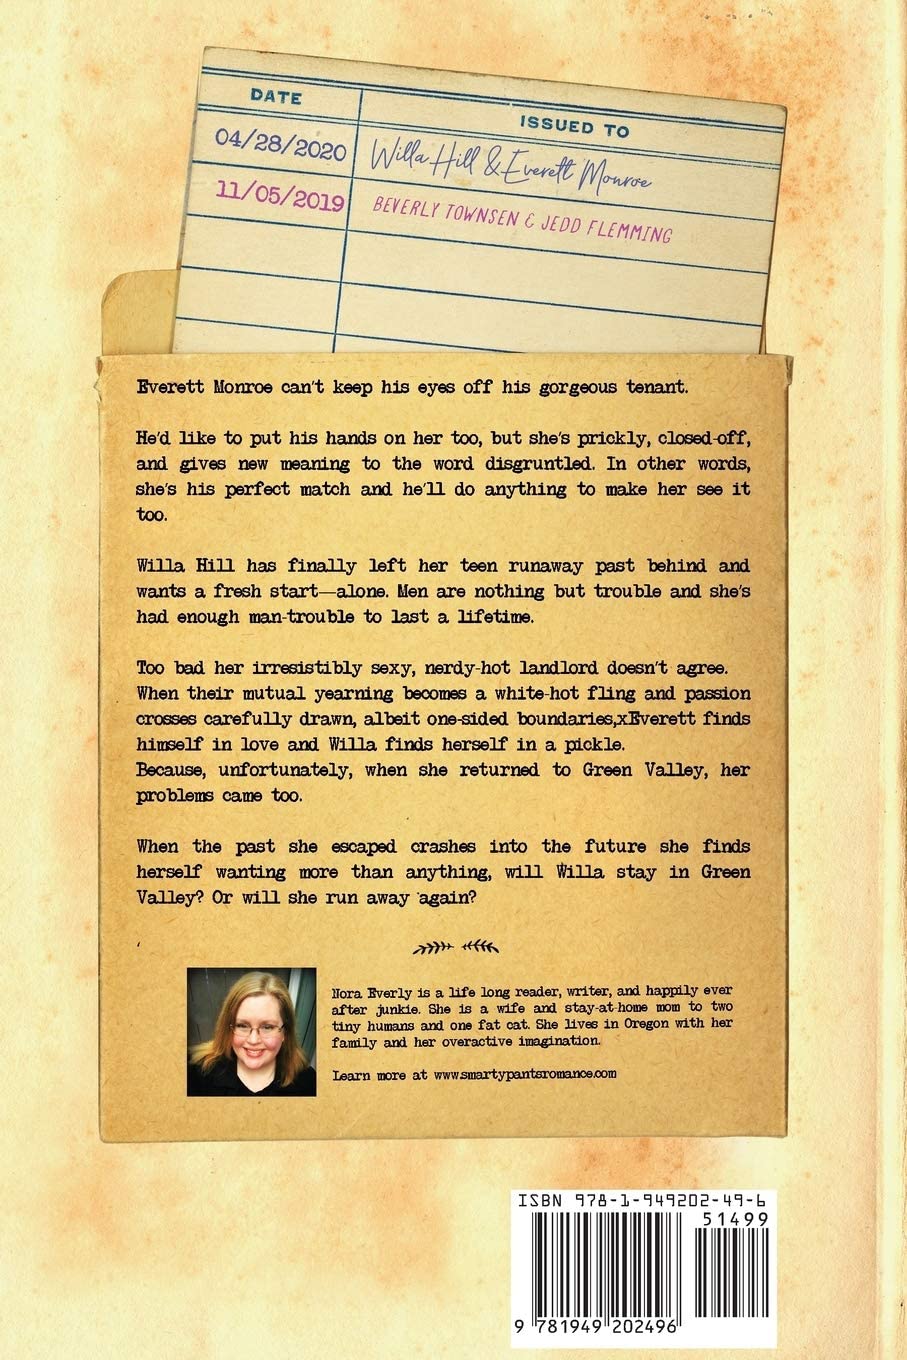 DATE ISSUED TO
04/28/2020 Willa Hill & Everett Monroe
11/05/2019 BEVERLY TOWNSEN & JEDD FLEMMING
Everett Monroe can't keep his eyes off his gorgeous tenant.
He'd like to put his hands on her too, but she's prickly, closed-off,
and gives new meaning to the word disgruntled. In other words,
she's his perfect match and he'll do anything to make her see it
too.
Willa Hill has finally left her teen runaway past behind and
wants a fresh start—alone. Men are nothing but trouble and she's
had enough man-trouble to last a lifetime.
Too bad her irresistibly sexy, nerdy-hot landlord doesn't agree.
When their mutual yearning becomes a white-hot fling and passion
crosses carefully drawn, albeit one-sided boundaries,xEverett finds
himself in love and Willa finds herself in a pickle.
Because, unfortunately, when she returned to Green Valley, her
problems came too.
When the past she escaped crashes into the future she finds
herself wanting more than anything, will Willa stay in Green
Valley? Or will she run away again?
Nora Everly is a life long reader, writer, and happily ever
after junkie. She is a wife and stay-at-home mom to two
tiny humans and one fat cat. She lives in Oregon with her
family and her overactive imagination.
Learn more at www.smartypantsromance.com
ISBN 978-1-949202-49-6
51499
9 781949 202496